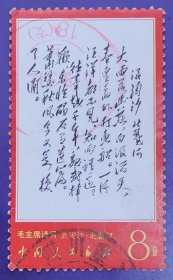 浪淘沙 北戴河
大雨落幽燕 白浪滔天
秦皇岛外打鱼船 一片
汪洋都不见 知向谁边
往事越千年 魏武挥
鞭 东临碣石有遗篇
萧瑟秋风今又是 换
了人间
毛主席诗词 浪淘沙·北戴河
中国人民邮政 8分